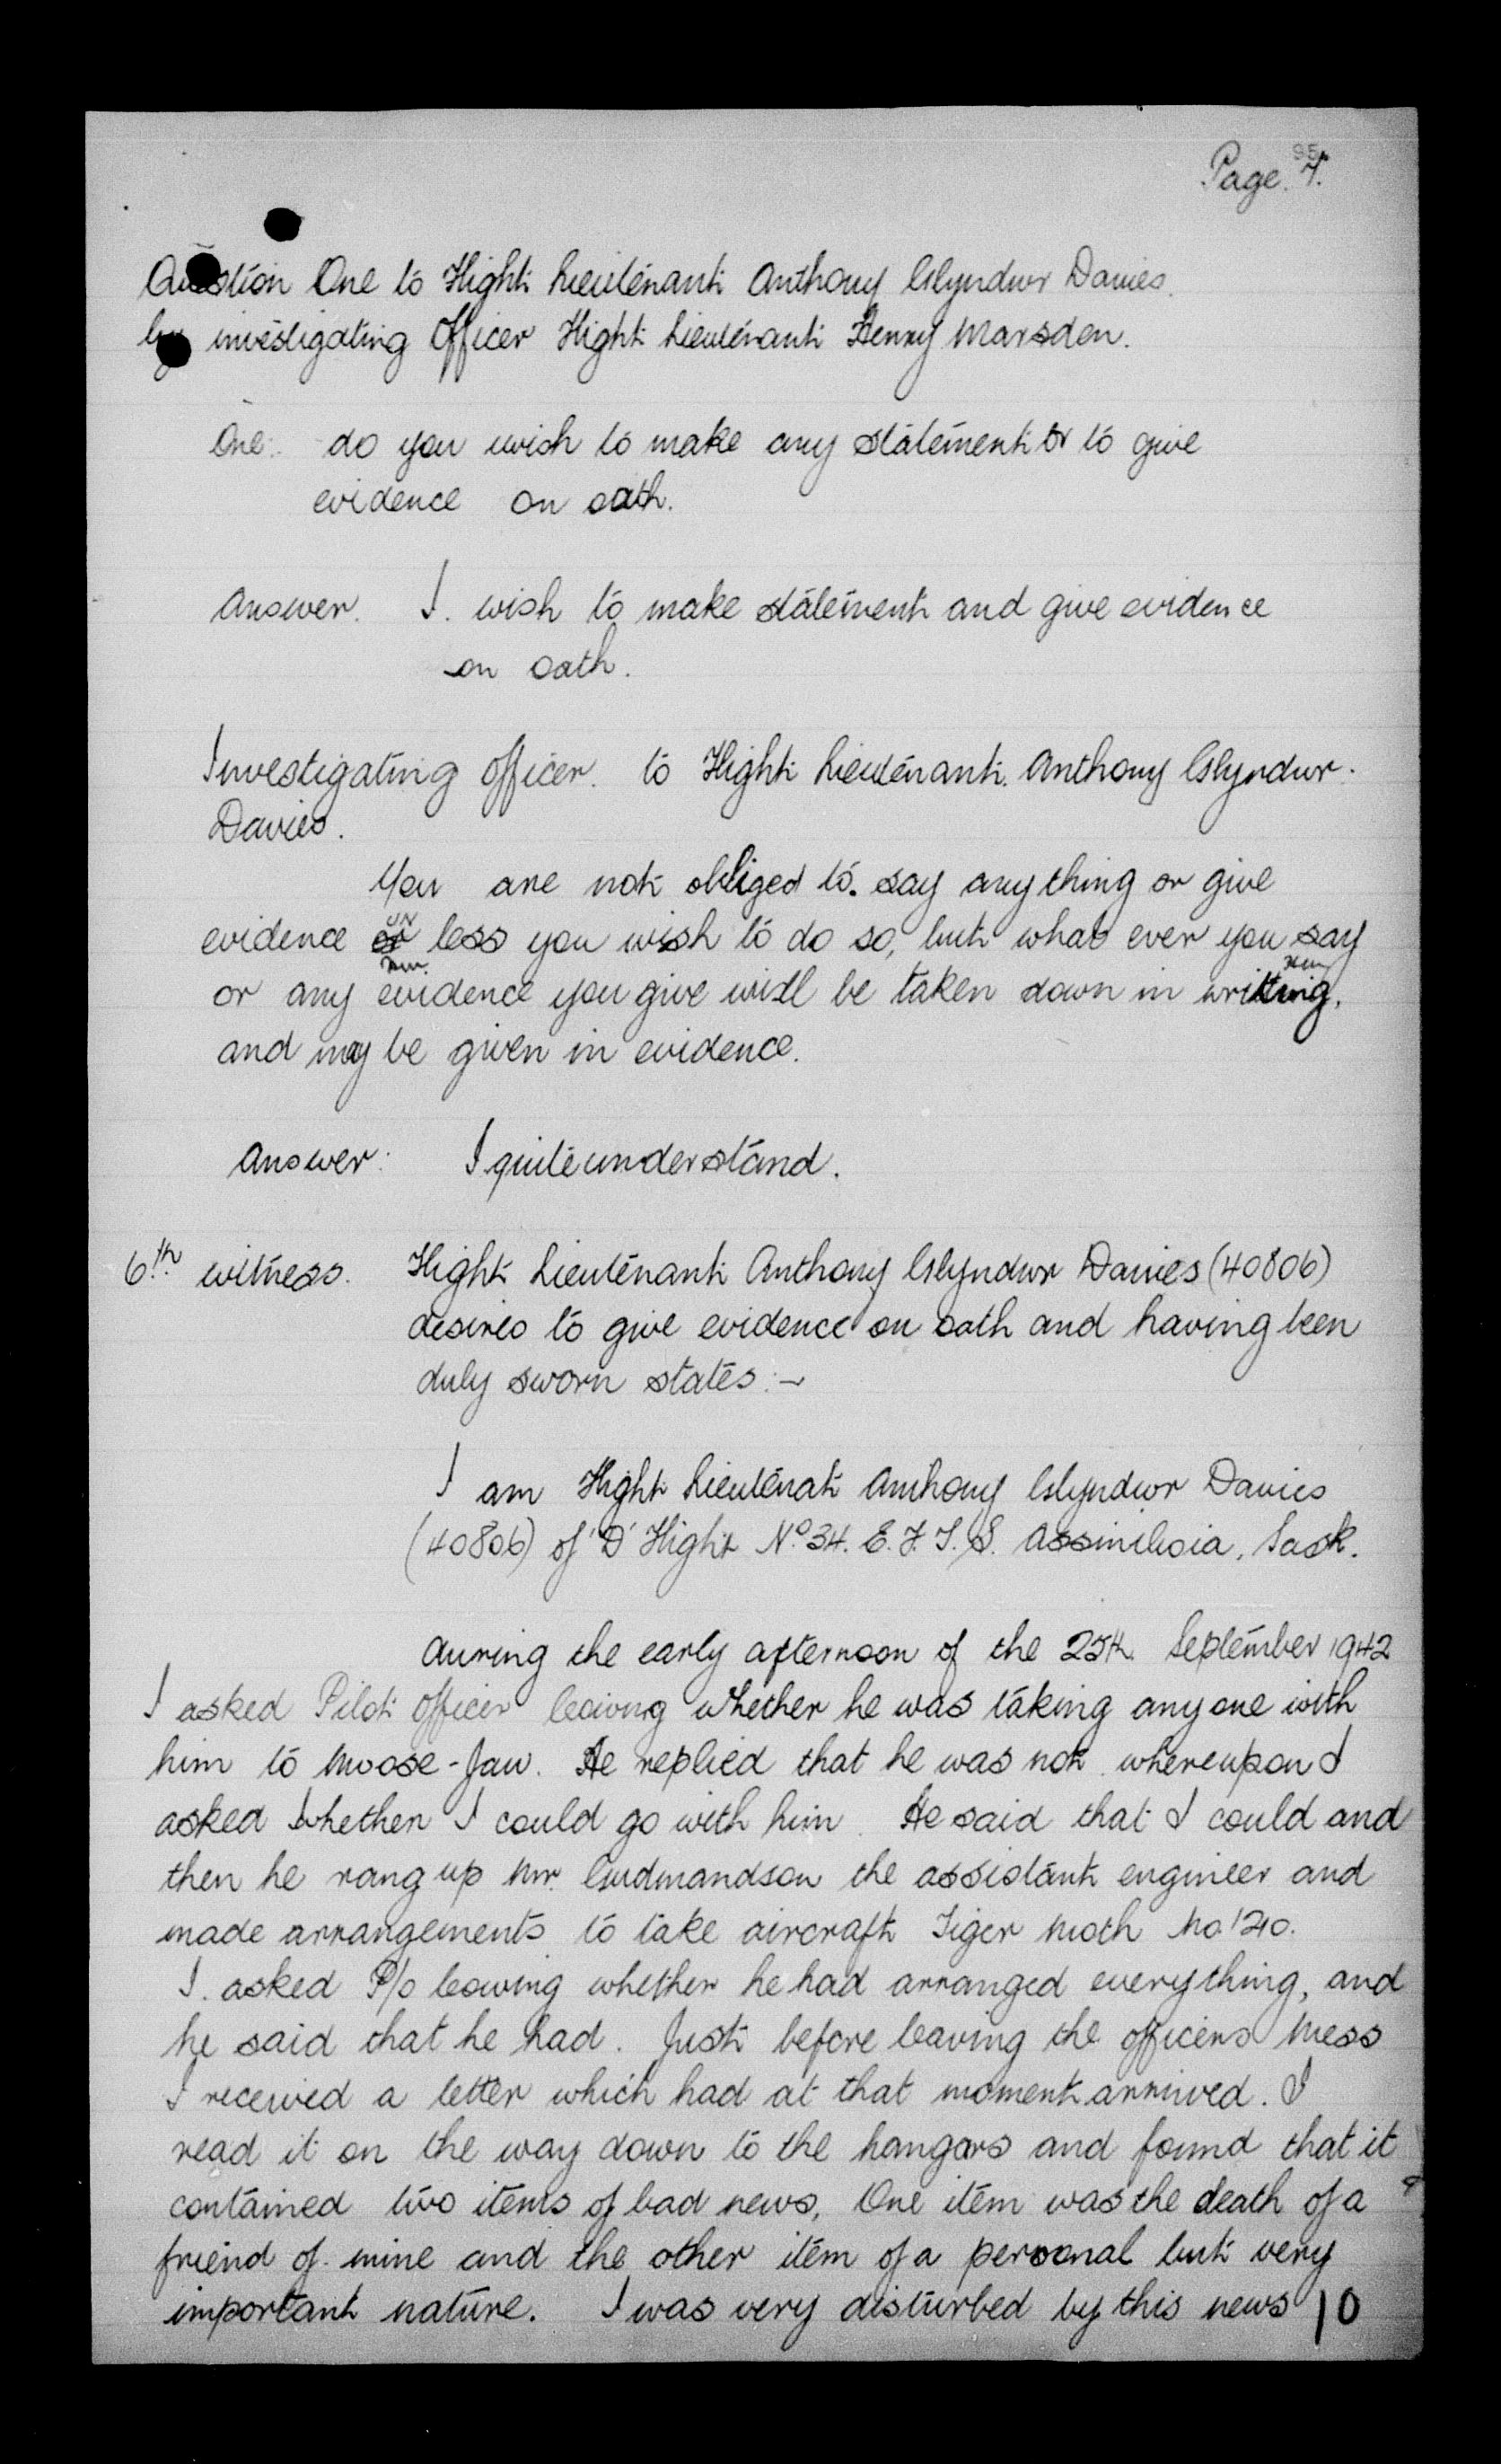 95
Page. 7.
Question One to Flight Lieutenant Anthony Glyndwr Davies.
by investigating Officer Flight Lieutenant Henry Marsden.
One: do you wish to make any statement or to give
evidence on oath.
Answer. I. wish to make statement and give evidence
on oath.
Investigating officer. to Flight Lieutenant. Anthony Glyndwr.
Davies.
You are not obliged to. say anything or give
evidence un less you wish to do so, but what ever you say
or any evidence you give will be taken down in writting.
and may be given in evidence.
Answer: I quite understand.
6th. witness. Flight Lieutenant Anthony Glyndwr Davies (40806)
desires to give evidence on oath and having been
duly sworn states:-
I am Flight Lieutenat Anthony Glyndwr Davies
(40806) of 'D' Flight No. 34. E.F.T.S. Assiniboia, Sask.
During the early afternoon of the 25th. September 1942
I asked Pilot Officer whether he was taking anyone with
him to Moose-Jaw. He replied that he was not whereupon I
asked whether I could go with him. He said that I could and
then he rang up Mr. Gudmandson the assistant engineer and
made arrangements to take aircraft Tiger Moth No.
I. asked P/O whether he had arranged everything, and
he said that he had. Just before leaving the officers Mess
I received a letter which had at that moment arrived. I
read it on the way down to the hangars and found that it
contained two items of bad news. One item was the death of a
friend of mine and the other item of a personal but very
important nature. I was very disturbed by this news
10